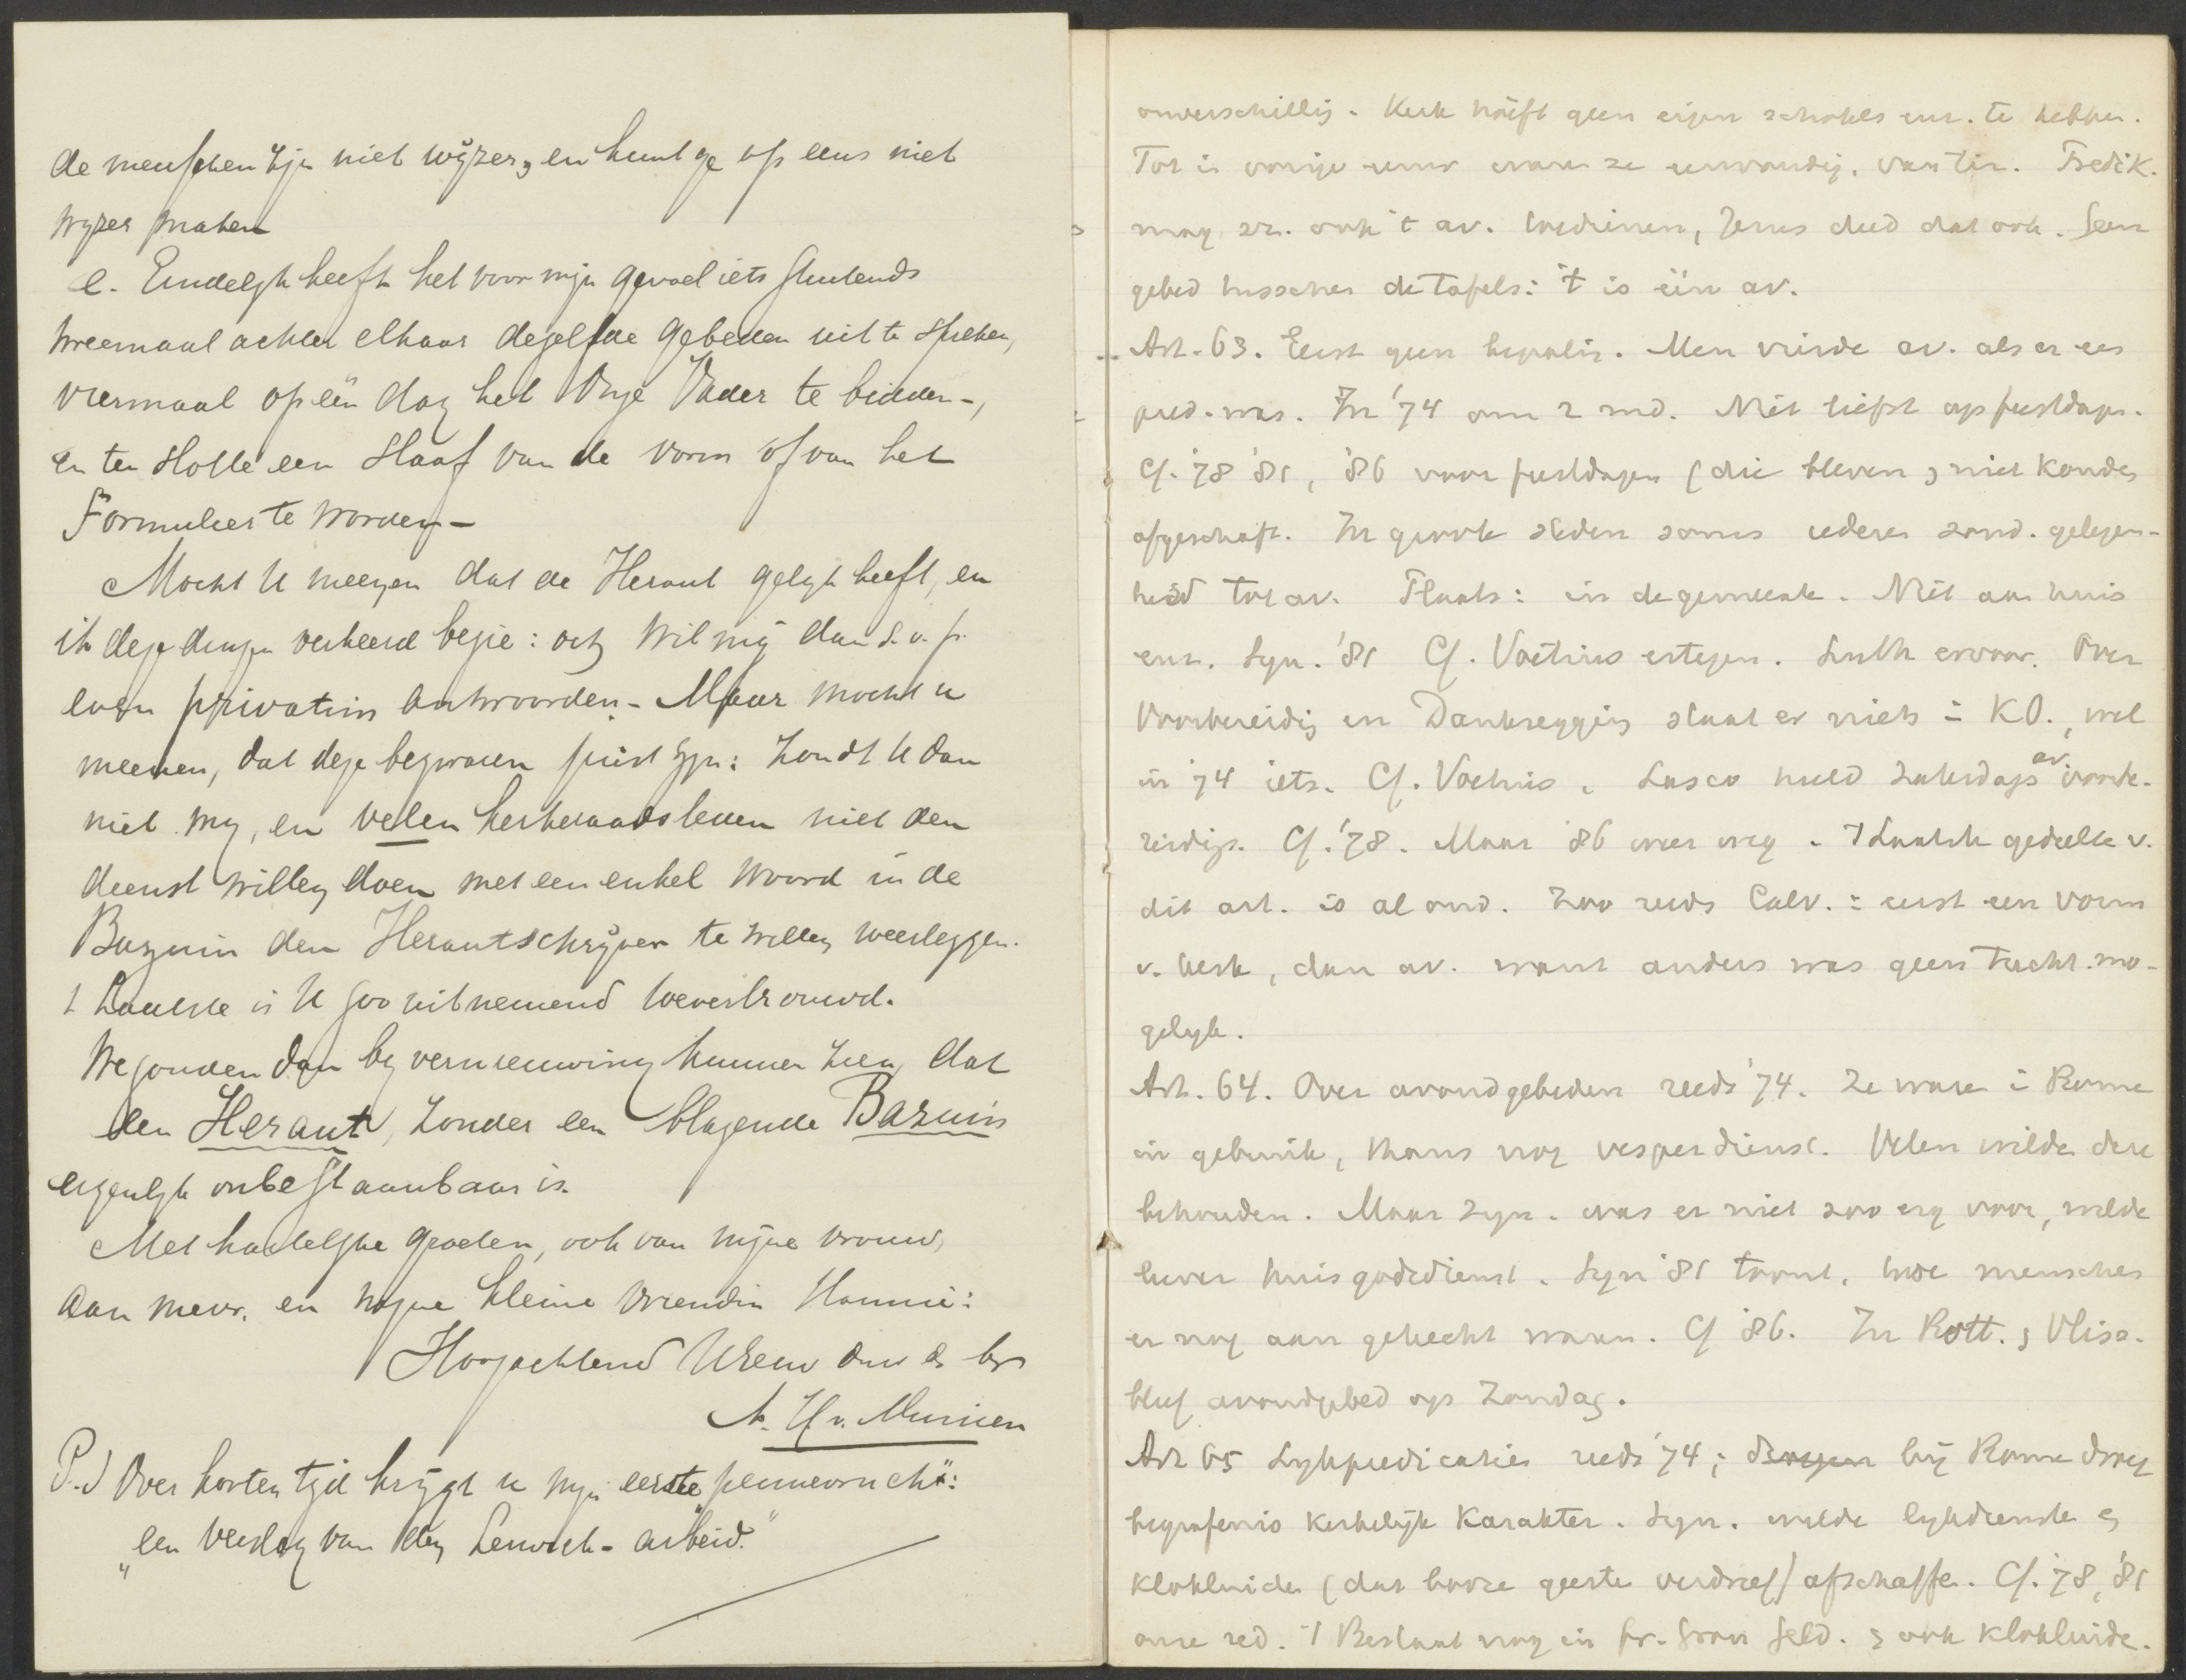 de menschen zijn niet wijzer, en kunt ge op eens niet
wijzer maken
e. Eindelijk heeft het voor mijn gevoel iets stuitends
tweemaal achter elkaar dezelfde gebeden uit te spreken,
viermaal op één dag het Onze Vader te bidden -,
en ten slotte een slaaf van de vorm of van het
Formulier te worden -
Mocht U meenen dat de Heraut gelijk heeft, en
ik deze dingen verkeerd bezie: och, wil mij dan s.v.p.
even privatim antwoorden. - Maar mocht u
meenen, dat deze bezwaren juist zijn: zoudt U dan
niet mij, en velen kerkeraadsleden niet den
dienst willen doen met een enkel woord in de
Bazuin den Herautschrijver te willen weerleggen.
't Laatste is U zoo uitnemend toevertrouwd.
We zouden dan bij vernieuwing kunnen zien, dat
den Heraut, zonder een blazende Bazuin
eigenlijk onbestaanbaar is.
Met hartelijke groeten, ook van mijne vrouw,
aan mevr. en mijne kleine vriendin Hannie:
Hoogachtend UwEew dw ds br
A. H. v. Minnen
P.S Over korten tijd krijgt u mijn eerste "pennevrucht":
"een verslag van den Lerwick-arbeid."
onverschillig. Kerk hoeft geen eigen schotels enz. te hebben.
Tot in vorige eeuw waren ze eenvoudig, van tin. Predik.
mag zn. ook 't av. bedienen, Jezus deed dat ook. Geen
gebed tusschen de tafels: 't is één av.
Art. 63. Eerst geen bepaling. Men vierde av. als er een
pred. was. In '74 om 2 md. Niet liefst op feestdagen.
Cf. '78 '81, '86 voor feestdagen (die bleven, niet konden
afgeschaft. In groote steden soms iederen zond. gelegen-
heid tot av. Plaats: in de gemeente. Niet aan huis
enz. Syn. '81 Cf. Voetius ertegen. Luth ervoor. Over
Voorbereiding en Dankzegging staat er niets in KO., wel
in '74 iets. Cf. Voetius. Lasco hield Zaterdags av voorbe-
reiding. Cf. '78. Maar '86 weer weg. 't Laatste gedeelte v.
dit art. is al oud. Zoo reeds Calv.: eerst een vorm
v. kerk, dan av. want anders was geen tucht mo-
gelijk.
Art. 64. Over avondgebeden reeds '74. Ze waren in Rome
in gebruik, thans nog vesperdienst. Velen wilden deze
behouden. Maar Syn. was er niet zoo erg voor, wilde
liever huisgodsdienst. Syn '81 toont, hoe menschen
er nog aan gehecht waren. Cf '86. In Rott. & Vliss.
bleef avondgebed op Zondag.
Art 65 Lijkpredicaties reeds '74; bij Rome droeg
begrafenis kerkelijk karakter. Syn. wilde lijkdiensten &
klokluiden (dat booze geesten verdreef) afschaffen. Cf. '78, '81
onze red. 't Bestaat nog in fr. Gron Geld. & ook klokluiden.